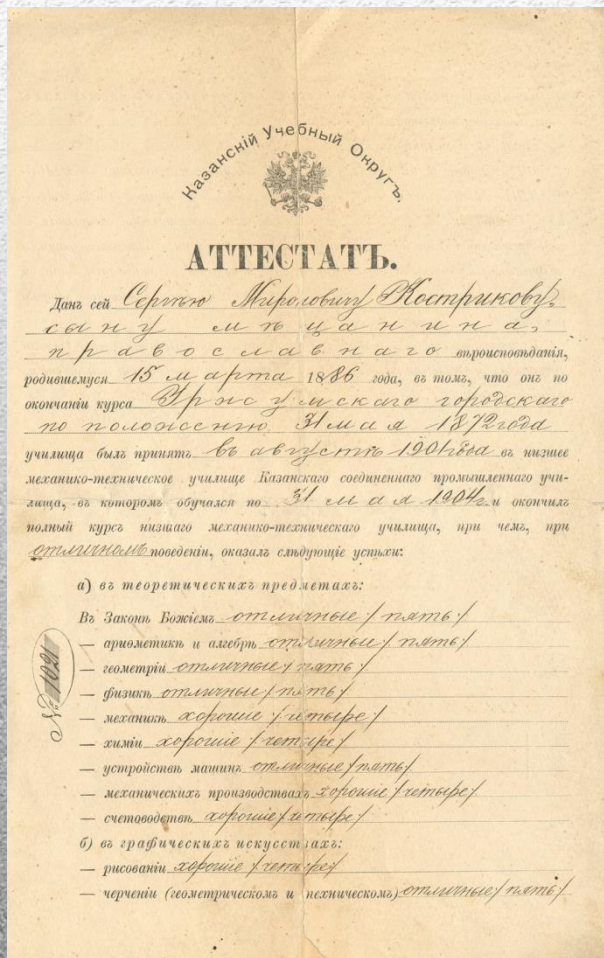 Казанскій Учебный Округъ.
АТТЕСТАТЪ.
Данъ сей Сергѣю Мироновичу Кострикову,
сыну мѣщанина,
православнаго вѣроисповѣданія,
родившемуся 15 марта 1886 года, въ томъ, что онъ по
окончаніи курса Уржумскаго городскаго
по положенію 31 мая 1872 года
училища былъ принятъ въ августѣ 1901 года въ низшее
механико-техническое училище Казанскаго соединеннаго промышленнаго учи-
лища, въ которомъ обучался по 31 мая 1904 г. и окончилъ
полный курсъ низшаго механико-техническаго училища, при чемъ, при
отличномъ поведеніи, оказалъ слѣдующіе успѣхи:
а) въ теоретическихъ предметахъ:
Въ Законѣ Божіемъ отличные /пять/
— ариѳметикѣ и алгебрѣ отличные /пять/
— геометріи отличные /пять/
— физикѣ отличные /пять/
— механикѣ хорошіе /четыре/
— химіи хорошіе /четыре/
— устройствѣ машинъ отличные /пять/
— механическихъ производствахъ хорошіе /четыре/
— счетоводствѣ хорошіе /четыре/
б) въ графическихъ искусствахъ:
— рисованіи хорошіе /четыре/
— черченіи (геометрическомъ и техническомъ) отличные /пять/
№ 1021